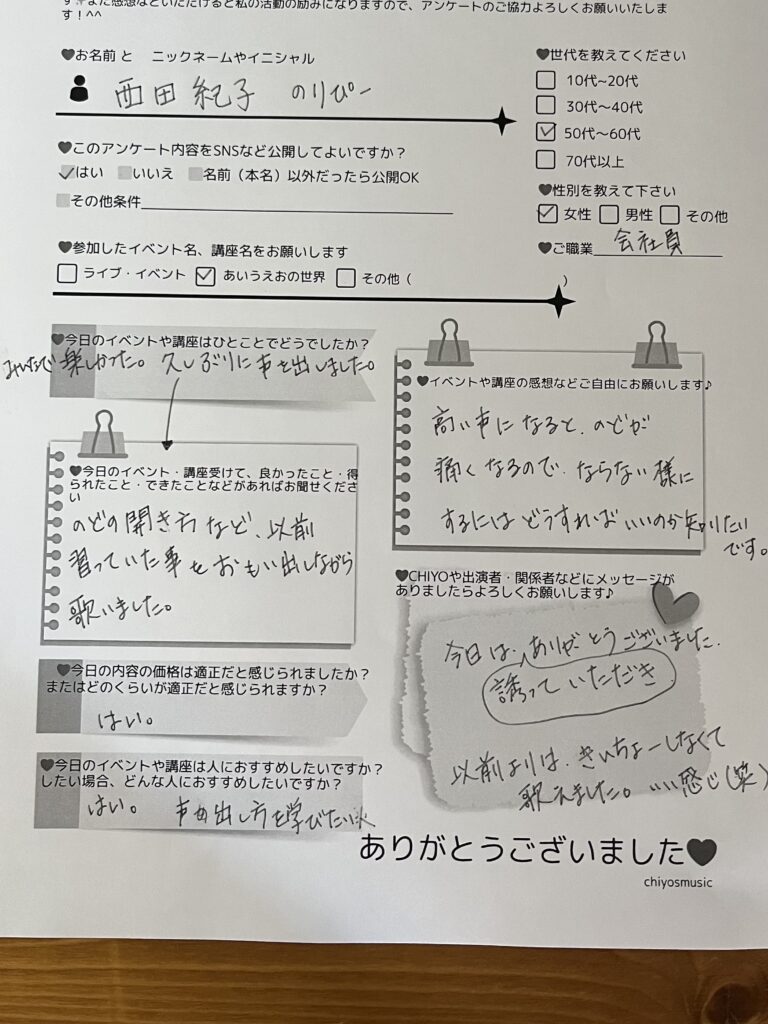 す✨また感想などいただけると私の活動の励みになりますので、アンケートのご協力よろしくお願いいたしま
す！^^
♥お名前 と ニックネームやイニシャル
西田 紀子 のりぴー
♥このアンケート内容をSNSなど公開してよいですか？
✓はい いいえ 名前（本名）以外だったら公開OK
その他条件
♥世代を教えてください
10代~20代
30代~40代
✓ 50代~60代
70代以上
♥性別を教えて下さい
✓ 女性 男性 その他
♥ご職業 会社員
♥参加したイベント名、講座名をお願いします
ライブ・イベント ✓ あいうえおの世界 その他（ ）
♥今日のイベントや講座はひとことでどうでしたか？
みんなで楽しかった。久しぶりに声を出しました。
♥今日のイベント・講座受けて、良かったこと・得
られたこと・できたことなどがあればお聞せくださ
い
のどの開き方など、以前
習っていた事をおもい出しながら
歌いました。
♥今日の内容の価格は適正だと感じられましたか？
またはどのくらいが適正だと感じられますか？
はい。
♥今日のイベントや講座は人におすすめしたいですか？
したい場合、どんな人におすすめしたいですか？
はい。 声の出し方を学びたい人
♥イベントや講座の感想などご自由にお願いします♪
高い声になると、のどが
痛くなるので、ならない様に
するにはどうすればいいのか知りたい
です。
♥CHIYOや出演者・関係者などにメッセージが
ありましたらよろしくお願いします♪
今日は、ありがとうございました.
誘っていただき
以前よりは、きんちょーしなくて
歌えました。いい感じ(笑)
ありがとうございました♥
chiyosmusic